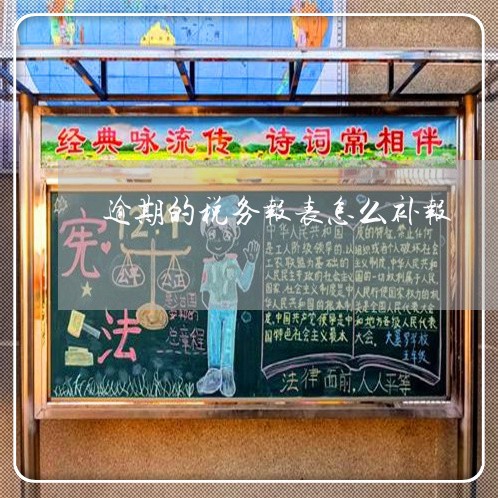 经典咏流传 诗词常相伴
逾期的税务报表怎么补报
宪法
公平
公正
总章程
中华人民共和国
是工人阶级领导的,以
工农联盟为基础的
人民民主专政的社会主义
国家,社会主义制度是中
华人民共和国的根本制
度,中国共产党领导是中
国特色社会主义最本
质的特征,禁止任何
组织或者个人破坏社会
主义制度,中华人民共和
国的一切权利属于人民,
人民行使国家权力的机
关是全国人民代表大会
和地方各级人民代表
大会.
五年级
法律面前,人人平等